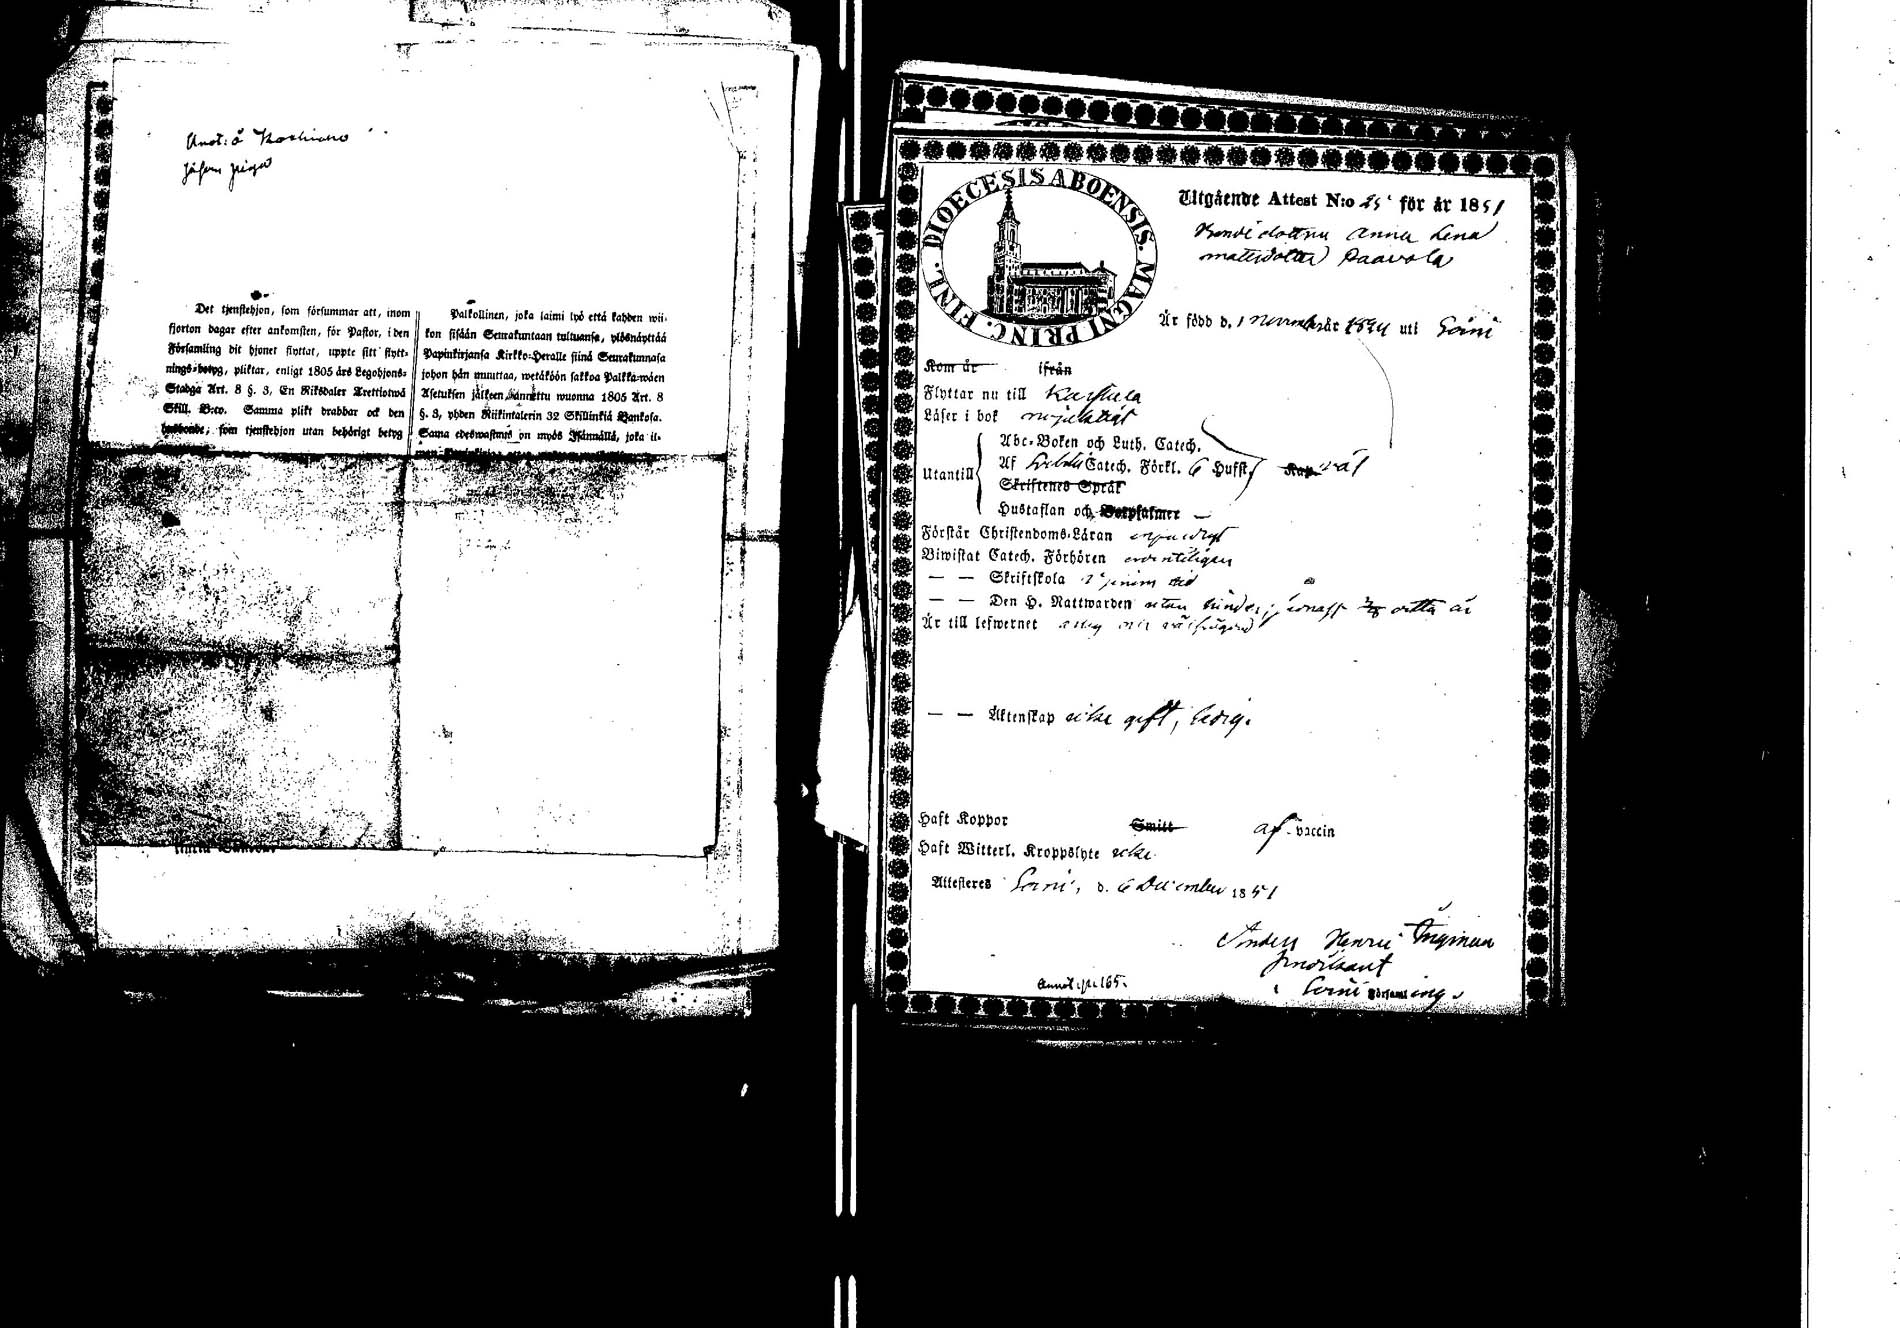 Annot: å
Det tjenstehjon, som försummar att, inom
fjorton dagar efter ankomsten, för Pastor, i den
Församling dit hjonet flyttat, uppte sitt flytt-
nings-betyg, pliktar, enligt 1805 års Legohjons-
Stadga Art. 8 §. 3, En Riksdaler Trettiotwå
Skill. B:co. Samma plikt drabbar ock den
husbonde, som tjenstehjon utan behörigt betyg
Palkollinen, joka laimi lyö että kahden wii-
kon sisään Seurakuntaan tultuansa, ylösnäyttää
Papinkirjansa Kirkko-Heralle siinä Seurakunnasa
johon hän muuttaa, wetäköön sakkoa Palkka-wäen
Asetuksen jälkeen, annettu wuonna 1805 Art. 8
§. 3, yhden Riikintalerin 32 Skillinkiä Bankosa.
Sama edeswastaus on myös Isännällä, joka il-
DIOECESIS ABOENSIS. MAGNI PRINC. FINL.
Utgående Attest N:o 25 för år 1851
Bondedottren Anna Lena
Mattsdotter Paavola
Är född d. 1 November år 1824 uti Soini
Kom år ifrån
Flyttar nu till Karstula
Läser i bok nöjaktigt
Utantill
Abc-Boken och Luth. Catech.
Af Catech. Förkl. 6 Hufst. Kap. väl
Skriftenes Språk
Hustaflan och Botpsalmer —
Förstår Christendoms-Läran
Biwistat Catech. Förhören ordentligen
— — Skriftskola
— — Den H. Nattwarden utan hinder, detta år
Är till lefwernet
— — Äktenskap icke gift, ledig.
Haft Koppor Smitt af vaccin
Haft Witterl. Kroppslyte icke
Attesteres Soini, d. 6 December 1851
Anders Henric
i Soini Församling.
Annot. pag. 165.